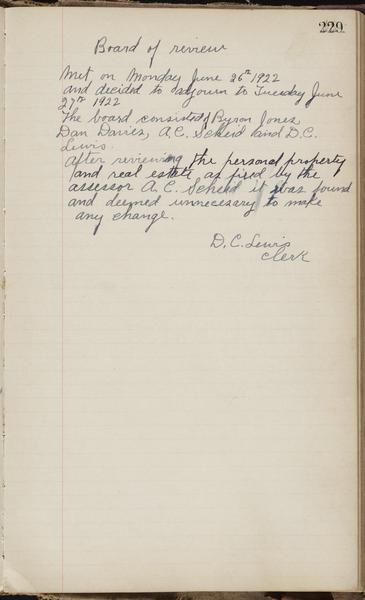 229
Board of review
Met on Monday June 26th 1922
and decided to adjourn to Tuesday June
27th 1922
The board consisted of Byron Jones
Dan Davies, A.C. Scheid and D.C.
Lewis.
After reviewing the personal property
and real estate as fixed by the
assessor A. C. Scheid it was found
and deemed unnecessary to make
any change.
D. C. Lewis
Clerk